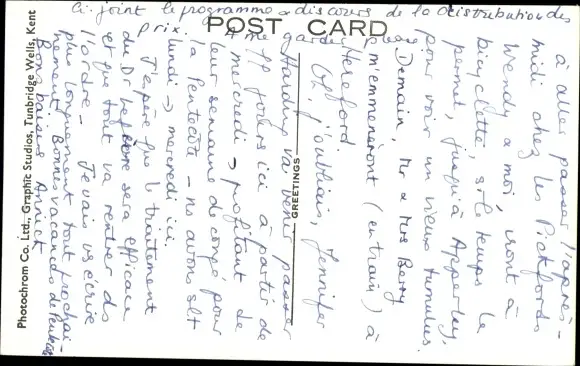 Ci-joint le programme & discours de la distribution des
prix. A me garder please
POST CARD
GREETINGS
Photochrom Co. Ltd., Graphic Studios, Tunbridge Wells, Kent
à aller passer l'après-
midi chez les Pickfords
Wendy & moi, irons à
bicyclette, si le temps le
permet, jusqu'à Apperley,
pour voir un vieux tumulus.
Demain, Mr & Mrs Berry
m'emmèneront (en train) à
Hereford
Oh, j'oubliais, Jennifer
Harding va venir passer
qq jours ici à partir de
mercredi → profitant de
leur semaine de congé pour
la Pentecôte - ns avons slt
lundi → mercredi ici
J'espère que le traitement
du Dr sera efficace
et que tout va rentrer ds
l'ordre - Je vais vs écrire
plus longuement tout prochai-
nement. Bonnes vacances de
Bons baisers Annick